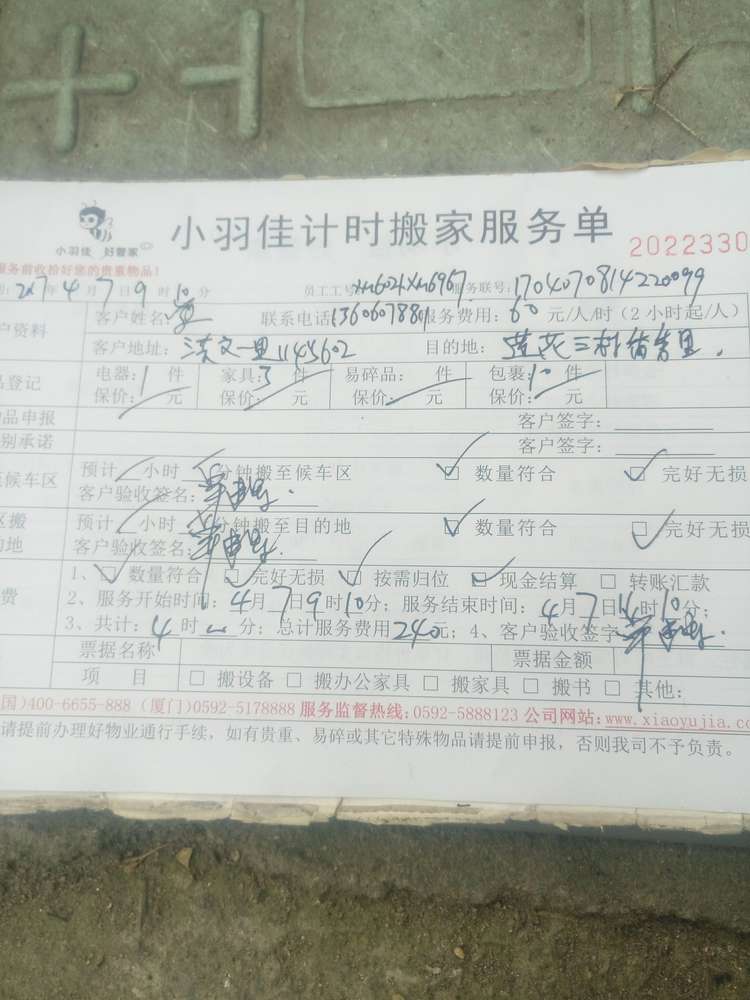 小羽佳 好管家
小羽佳计时搬家服务单
2022330
服务前收拾好您的贵重物品!
年4月7日9时10分 员工工号 服务联号:1704070814220099
户资料 客户姓名: 联系电话 服务费用:60元/人/时(2小时起/人)
客户地址: 目的地:莲花三村
品登记 电器:1件 家具:3件 易碎品: 件 包裹:10件
保价: 元 保价: 元 保价: 元 保价: 元
物品申报 客户签字:
别承诺 客户签字:
至候车区 预计 小时 分钟搬至候车区 ☑ 数量符合 ☑ 完好无损
客户验收签名:
区搬 预计 小时 分钟搬至目的地 ☑ 数量符合 ☑ 完好无损
的地 客户验收签名:
1、☑ 数量符合 ☑ 完好无损 ☑ 按需归位 ☑ 现金结算 □ 转账汇款
费 2、服务开始时间:4月7日9时10分; 服务结束时间:4月7日 时10分;
3、共计:4时 分; 总计服务费用240元; 4、客户验收签字
票据名称 票据金额
项 目 □ 搬设备 □ 搬办公家具 □ 搬家具 □ 搬书 □ 其他:
国)400-6655-888 (厦门)0592-5178888 服务监督热线:0592-5888123 公司网站:www.xiaoyujia.co
请提前办理好物业通行手续, 如有贵重、易碎或其它特殊物品请提前申报, 否则我司不予负责。